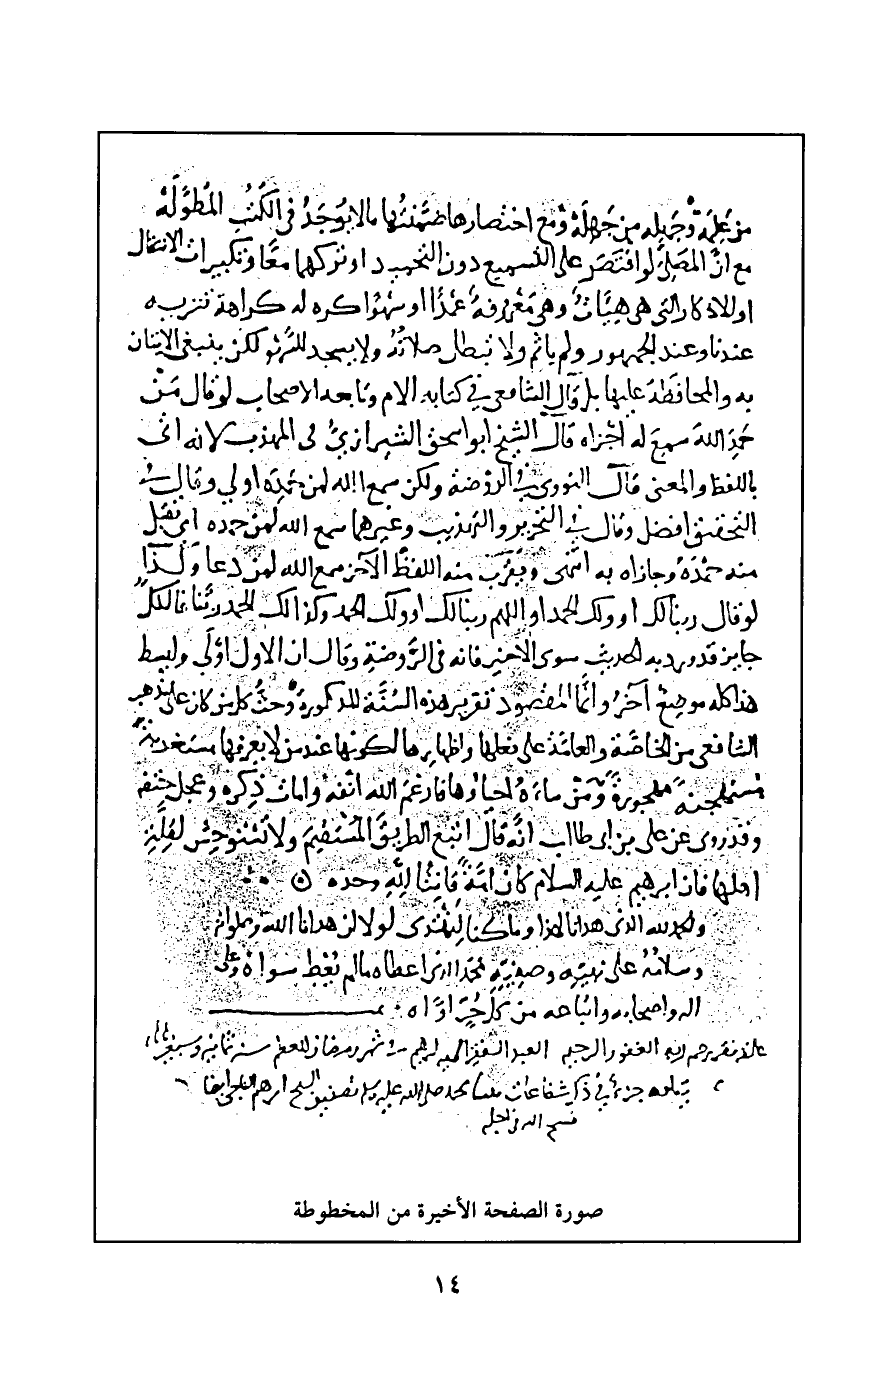 من علمه وجهله من جهله ومع اختصارها ضمنتها مالا يوجد في الكتب المطوله
مع ان المصلي لو اقتصر على التسميع دون التحميد او تركهما معا وتكبيرات الانتقال
او الاذكار التي هي هيئات وهي معروفة عمدا او سهوا كره له كراهة تنزيه
عندنا وعند الجمهور ولم ياثم ولا تبطل صلاته ولا يسجد للسهو لكن ينبغي الاتيان
به والمحافظة عليها بل قال الشافعي في كتابه الام وتابعه الاصحاب لو قال من
حمد الله سمع له اجزاه قال الشيخ ابو اسحق الشيرازي في المهذب لانه اتى
باللفظ والمعنى قال النووي في الروضة ولكن سمع الله لمن حمده اولي وقال في
التحقيق افضل وقال في التحرير والتهذيب وغيرهما سمع الله لمن حمده اي تقبل
منه حمده وجازاه به انتهى ويقرب منه اللفظ الآخر سمع الله لمن دعا وكذا
لو قال ربنا لك او ولك الحمد او اللهم ربنا لك او ولك الحمد وكذا لك الحمد ربنا فالكل
جايز قد ورد به الحديث سوى الاخير فانه في الروضة وقال ان الاول اولى ولبسط
هذا كله موضع آخر وانما المقصود تقرير هذه السنة المذكورة وحث كل من كان على مذهب
الشافعي من الخاصة والعامة على فعلها واظهارها لكونها عند من لا يعرفها مستغربة
مستهجنة مهجورة ومن ساءه احياوها فارغم الله انفه وامات ذكره وعجل حتفه
وقد روى عن علي بن ابي طالب انه قال اتبع الطريق المستقيم ولا تستوحش لقلة
اهلها فان ابرهيم عليه السلام كان امة قانتا لله وحده
والحمد لله الذي هدانا لهذا وما كنا لنهتدى لولا ان هدانا الله وصلواته
وسلامه على نبيه وصفيه محمد الذي اعطاه مالم يعط سواه وعلى
اله واصحابه واتباعه من كل
الغفور الرحيم العبد الفقير ابرهيم في شهر رمضان المعظم سنة ثمانية
يتلوه جزء في ذكر شفاعات نبينا محمد صلى الله عليه وسلم تصنيف الشيخ ابرهيم الناجي ايضا
فسح الله في اجله
صورة الصفحة الأخيرة من المخطوطة
١٤